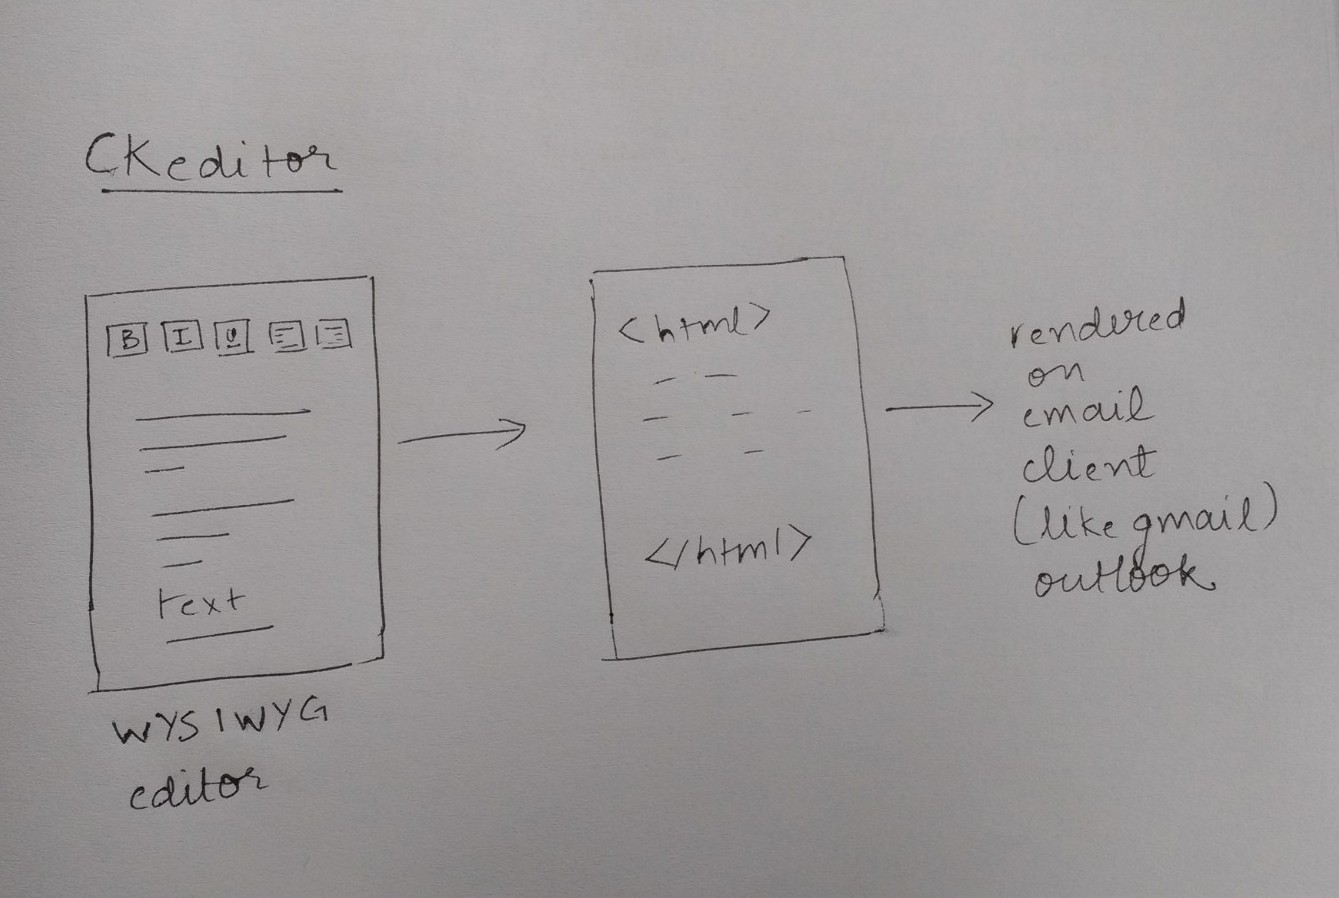 CKeditor
B I U
text
WYSIWYG
editor
<html>
</html>
rendered
on
email
client
(like gmail)
outlook